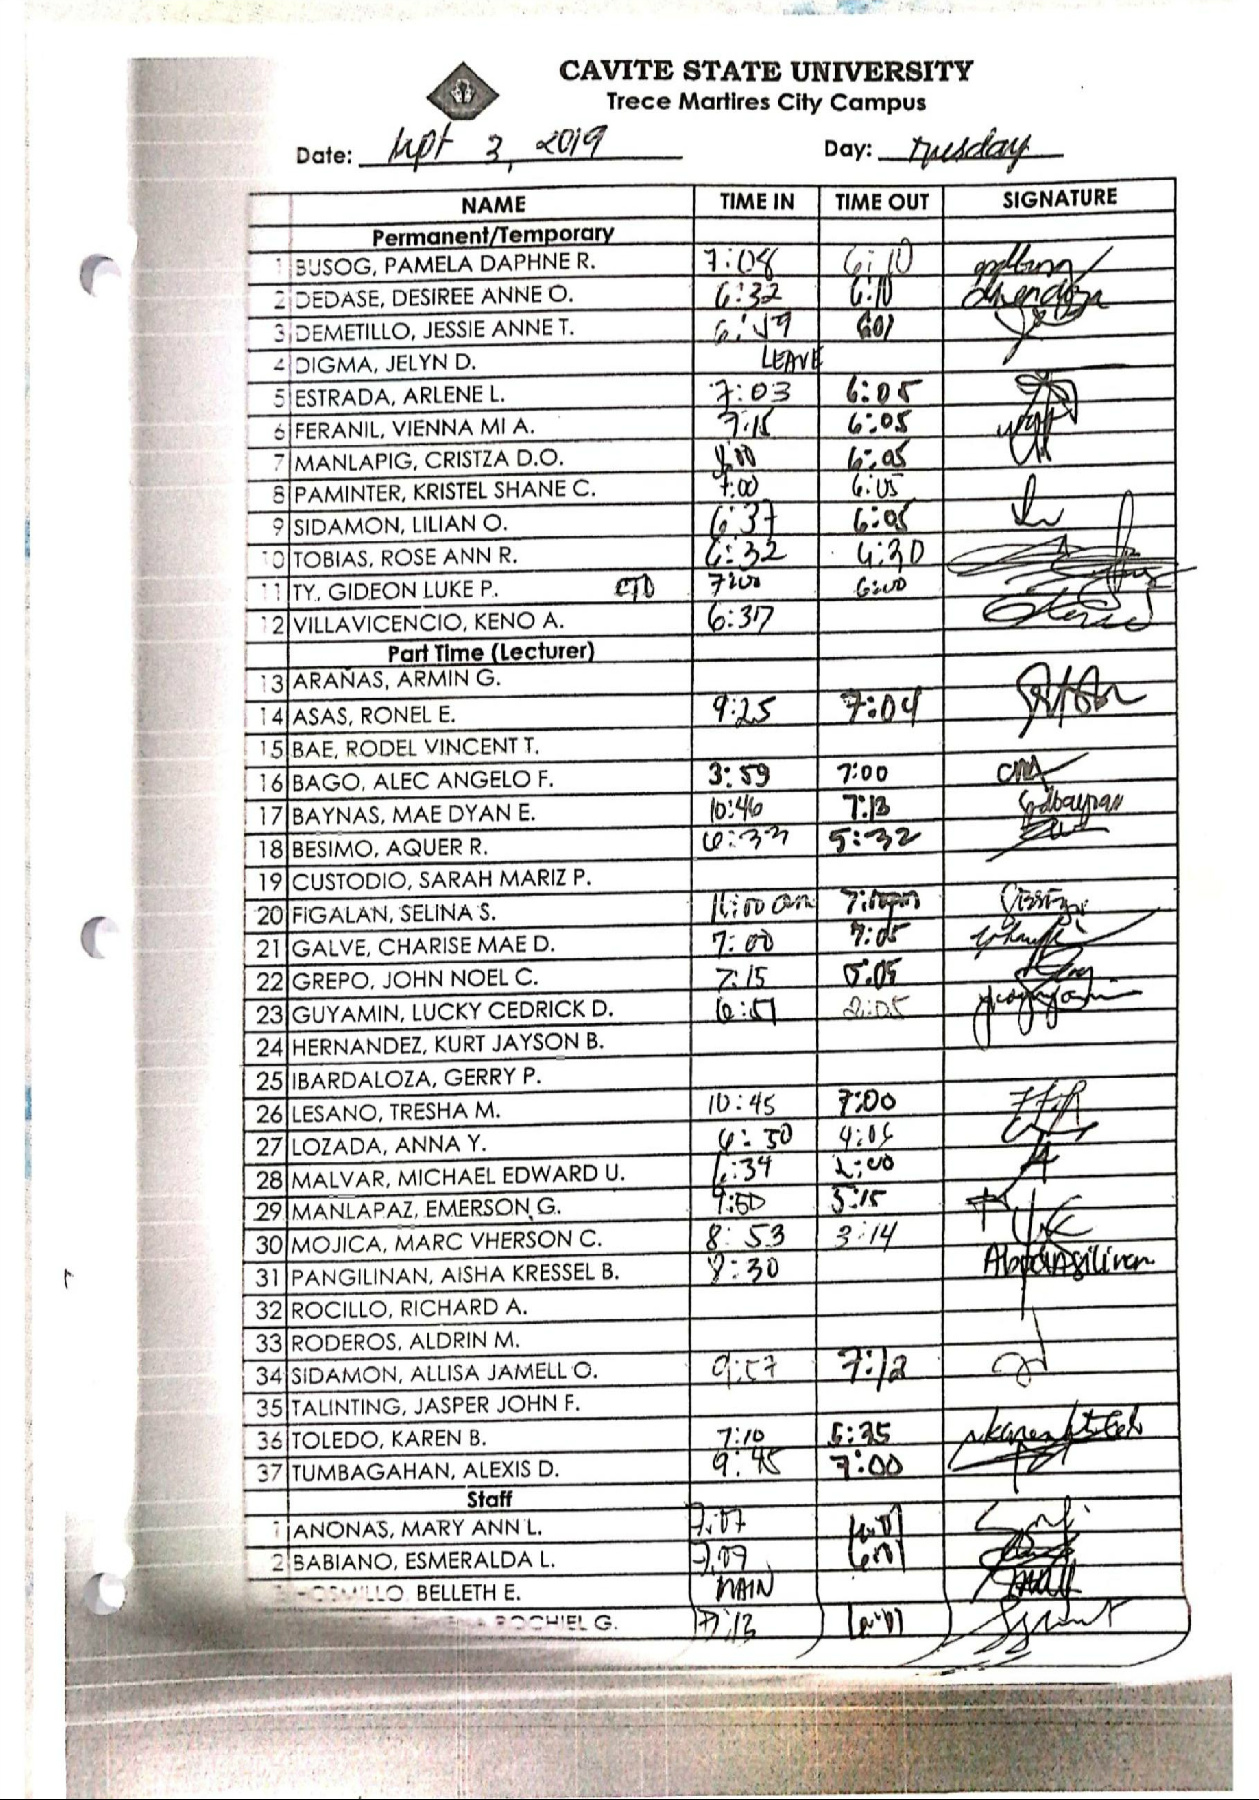 CAVITE STATE UNIVERSITY
Trece Martires City Campus
Date: Sept 3, 2019 Day: Tuesday
NAME TIME IN TIME OUT SIGNATURE
Permanent/Temporary
1 BUSOG, PAMELA DAPHNE R. 7:08 6:10
2 DEDASE, DESIREE ANNE O. 6:32 6:10
3 DEMETILLO, JESSIE ANNE T. 6:49 601
4 DIGMA, JELYN D. LEAVE
5 ESTRADA, ARLENE L. 7:03 6:05
6 FERANIL, VIENNA MI A. 7:15 6:05
7 MANLAPIG, CRISTZA D.O. 6:05
8 PAMINTER, KRISTEL SHANE C. 7:00 6:05
9 SIDAMON, LILIAN O. 6:37 6:05
10 TOBIAS, ROSE ANN R. 6:32 6:30
11 TY, GIDEON LUKE P. 7:00 6:00
12 VILLAVICENCIO, KENO A. 6:37
Part Time (Lecturer)
13 ARAÑAS, ARMIN G.
14 ASAS, RONEL E. 9:25 7:04
15 BAE, RODEL VINCENT T.
16 BAGO, ALEC ANGELO F. 3:59 7:00
17 BAYNAS, MAE DYAN E. 10:46 7:13
18 BESIMO, AQUER R. 6:33 5:32
19 CUSTODIO, SARAH MARIZ P.
20 FIGALAN, SELINA S. 11:00 am
21 GALVE, CHARISE MAE D. 7:00 7:05
22 GREPO, JOHN NOEL C. 7:15 5:05
23 GUYAMIN, LUCKY CEDRICK D. 6:51 2:05
24 HERNANDEZ, KURT JAYSON B.
25 IBARDALOZA, GERRY P.
26 LESANO, TRESHA M. 10:45 7:00
27 LOZADA, ANNA Y. 6:30
28 MALVAR, MICHAEL EDWARD U. 6:34 2:00
29 MANLAPAZ, EMERSON G. 5:15
30 MOJICA, MARC VHERSON C. 8:53 3:14
31 PANGILINAN, AISHA KRESSEL B. 8:30
32 ROCILLO, RICHARD A.
33 RODEROS, ALDRIN M.
34 SIDAMON, ALLISA JAMELL O. 9:57 7:12
35 TALINTING, JASPER JOHN F.
36 TOLEDO, KAREN B. 7:10 5:35
37 TUMBAGAHAN, ALEXIS D. 9:45 7:00
Staff
1 ANONAS, MARY ANN L. 7:07
2 BABIANO, ESMERALDA L. 7:09
BELLETH E. MAIN
ROCHIEL G. 7:13